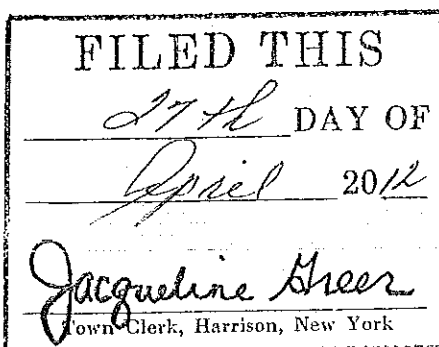 FILED THIS
27th DAY OF
April 2012
Jacqueline Greer
Town Clerk, Harrison, New York